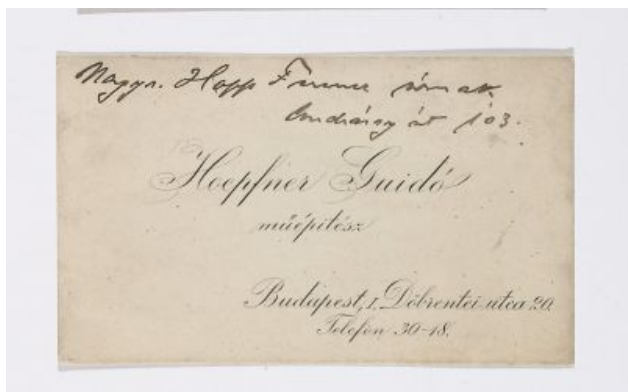 Nagys. Hopp Ferencz úrnak
Andrássy út 103.
Hoepfner Guidó
műépitész
Budapest, I. Döbrentei utca 20.
Telefon 30-18.